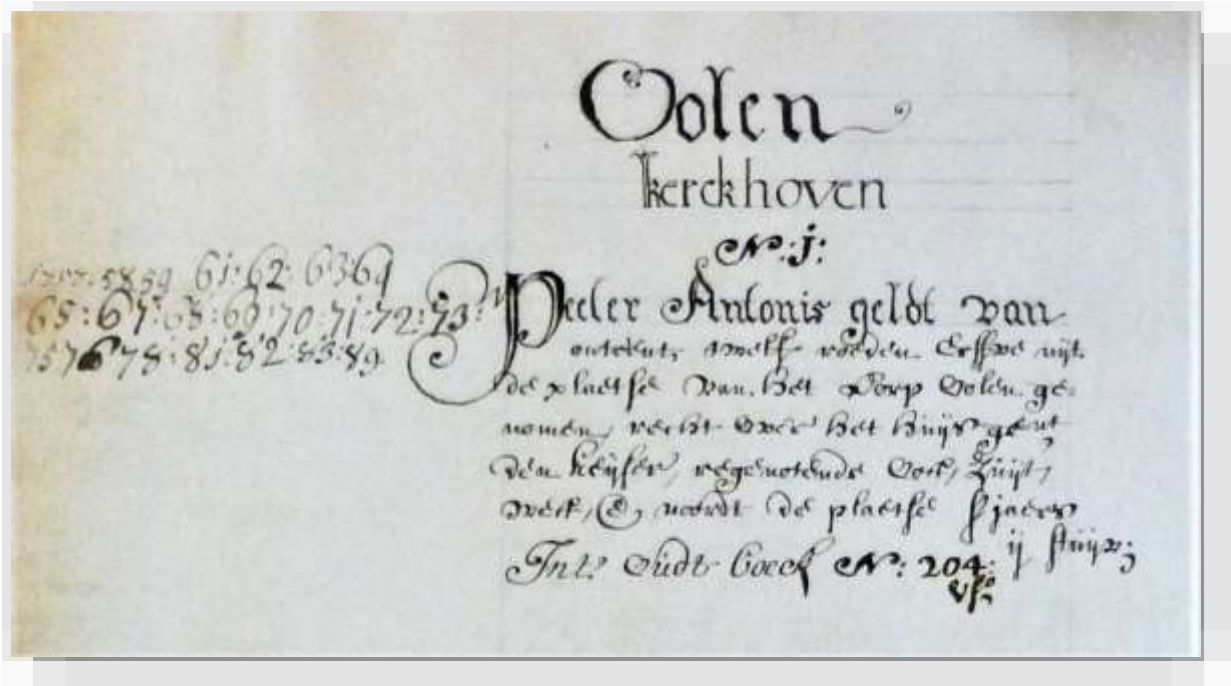 Oolen
kerckhoven
N:j:
1757:58 59 61:62: 63:64
65:67:68:69:70:71:72:73:
75 76 78:81:82:83:89
Peeter Antonis geldt van
ontrent, twelf roeden Erffve uijt
de plaetse van het Dorp Oolen ge-
nomen, recht over het huijs gent
den keijser, regenotende Oost, Zuijt,
West, & noordt de plaetse sjaers
ij stuijv:
Int oudt boeck N: 204: